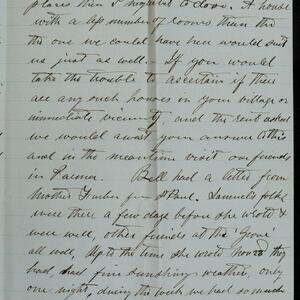 places than I
with a less number of rooms than the
the one we could have here would suit
us just as well – If you would
take the trouble to ascertain if there
are any such houses in your village or
immediate vicinity, and the rent asked
we would await your answer to this
and in the meantime visit our friends
in Palmer. Bell had a letter from
Mother from St Paul. Samuels folks
were there a few days before she wrote &
were well, other friends at the Grove
all well, Up to the time she wrote Nov they
had, had fine sunshiny weather, only
one night, during the week we had so much